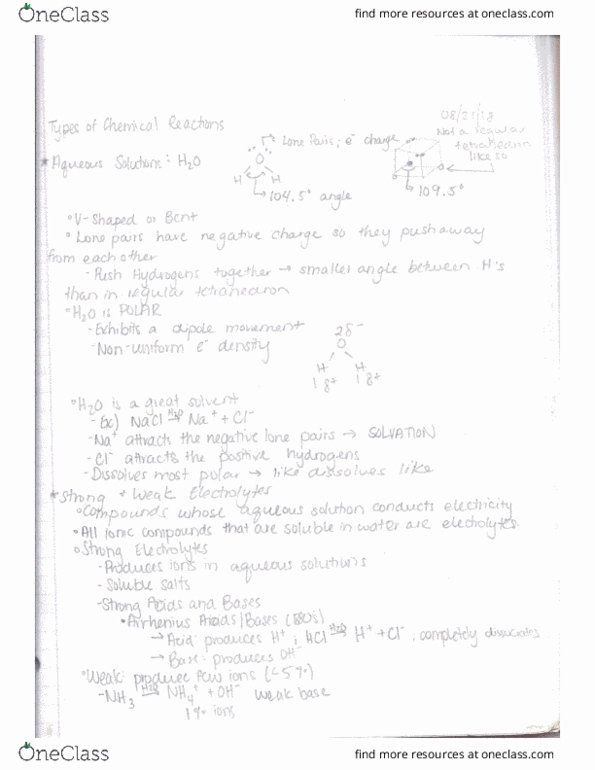 OneClass
find more resources at oneclass.com
08/21/18
Types of Chemical Reactions
Lone Pairs; e⁻ charge
Not a regular
tetrahedron
like so
* Aqueous Solutions: H₂O
O
H H
104.5° angle
109.5°
° V-Shaped or Bent
° Lone pairs have negative charge so they push away
from each other
- Push Hydrogens together → smaller angle between H's
than in regular tetrahedron
° H₂O is POLAR
- Exhibits a dipole movement
- Non-uniform e⁻ density
2δ⁻
O
H H
1δ⁺ 1δ⁺
° H₂O is a great solvent
- Ex) NaCl H₂O→ Na⁺ + Cl⁻
- Na⁺ attracts the negative lone pairs → SOLVATION
- Cl⁻ attracts the positive hydrogens
- Dissolves most polar → like dissolves like
* Strong + Weak Electrolytes
° Compounds whose aqueous solution conducts electricity
• All ionic compounds that are soluble in water are electrolytes
° Strong Electrolytes
- Produces ions in aqueous solutions
- Soluble salts
- Strong Acids and Bases
• Arrhenius Acids/Bases (1880's)
→ Acid: produces H⁺; HCl H₂O→ H⁺ + Cl⁻; completely dissociates
→ Base: produces OH⁻
° Weak: produce few ions (<5%)
- NH₃ H₂O→ NH₄⁺ + OH⁻ weak base
1% ions
OneClass
find more resources at oneclass.com